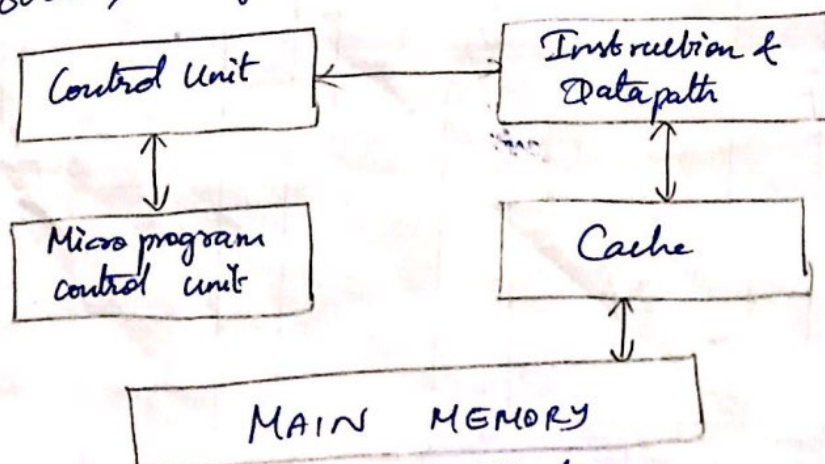 Control Unit
Instruction &
Datapath
Micro program
control unit
Cache
MAIN MEMORY